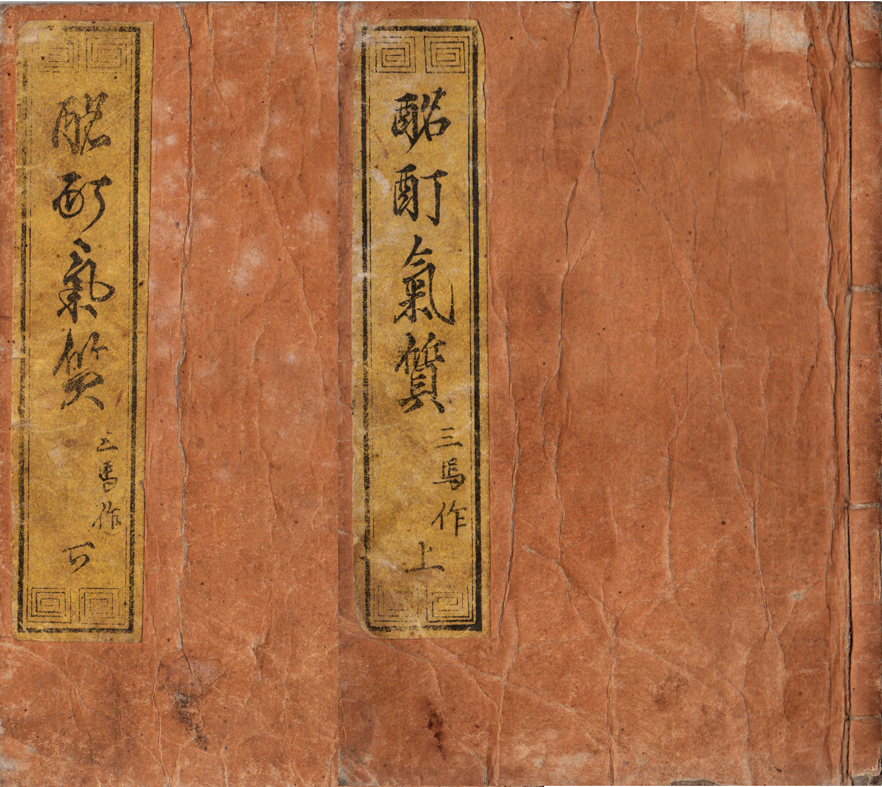 酩酊氣質
三馬作
上
酩酊氣質
三馬作
下